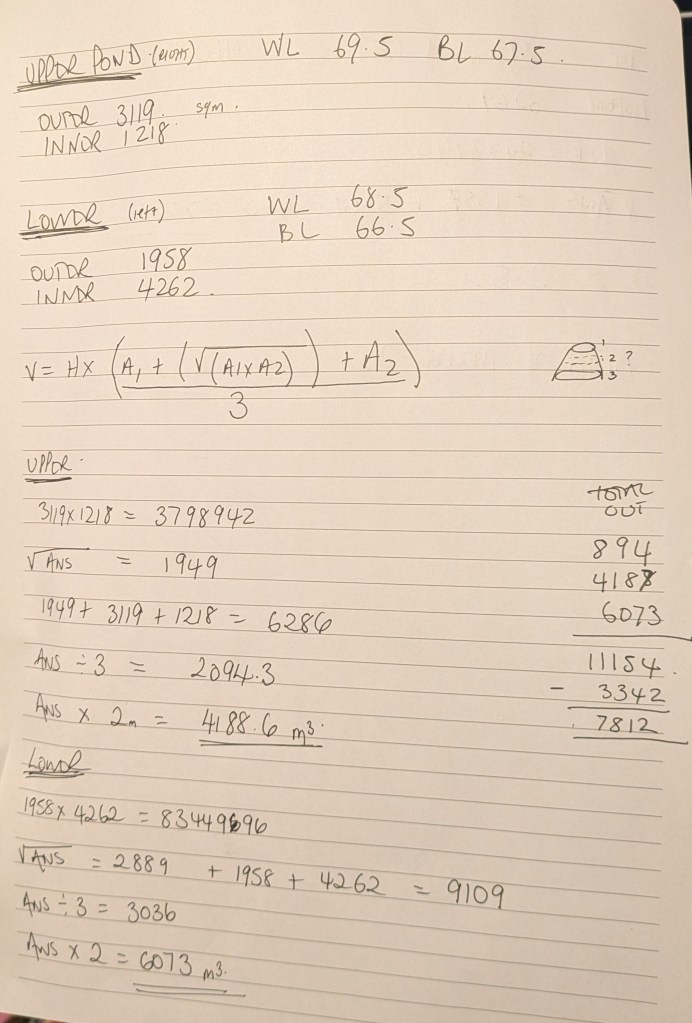 UPPER POND (RIGHT) WL 69.5 BL 67.5.
OUTER 3119. sqm.
INNER 1218.
LOWER (left) WL 68.5
BL 66.5
OUTER 1958
INNER 4262.
V = H x (A1 + (√(A1xA2)) + A2)
3
1
2 ?
3
UPPER.
3119 x 1218 = 3798942
√ANS = 1949
1949 + 3119 + 1218 = 6286
ANS ÷ 3 = 2094.3
ANS x 2m = 4188.6 m3.
TOTAL
OUT
894
4187
6073
11154.
- 3342
7812
LOWER
1958 x 4262 = 83449696
√ANS = 2889 + 1958 + 4262 = 9109
ANS ÷ 3 = 3036
ANS x 2 = 6073 m3.